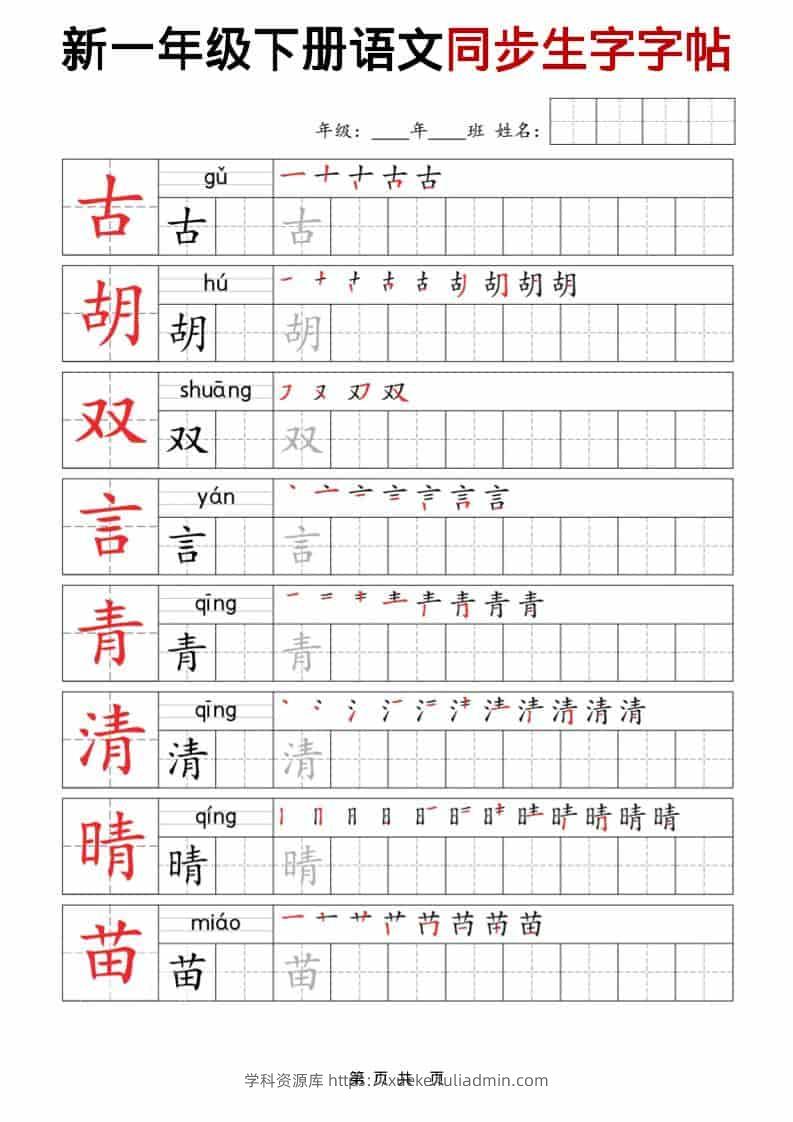 新一年级下册语文同步生字字帖
年级：____年____班 姓名：
古 gǔ 一 十 古 古
古 古
胡 hú 一 十 古 古 胡 胡
胡 胡
双 shuāng フ 又 双 双
双 双
言 yán 丶 亠 言 言
言 言
青 qīng 一 二 青 青 青
青 青
清 qīng 丶 冫 氵 清 清 清
清 清
晴 qíng 丨 冂 日 日 晴 晴 晴
晴 晴
苗 miáo 一 十 艹 苗 苗
苗 苗
第 页 共 页
学科资源库 https://xueke.fuliadmin.com